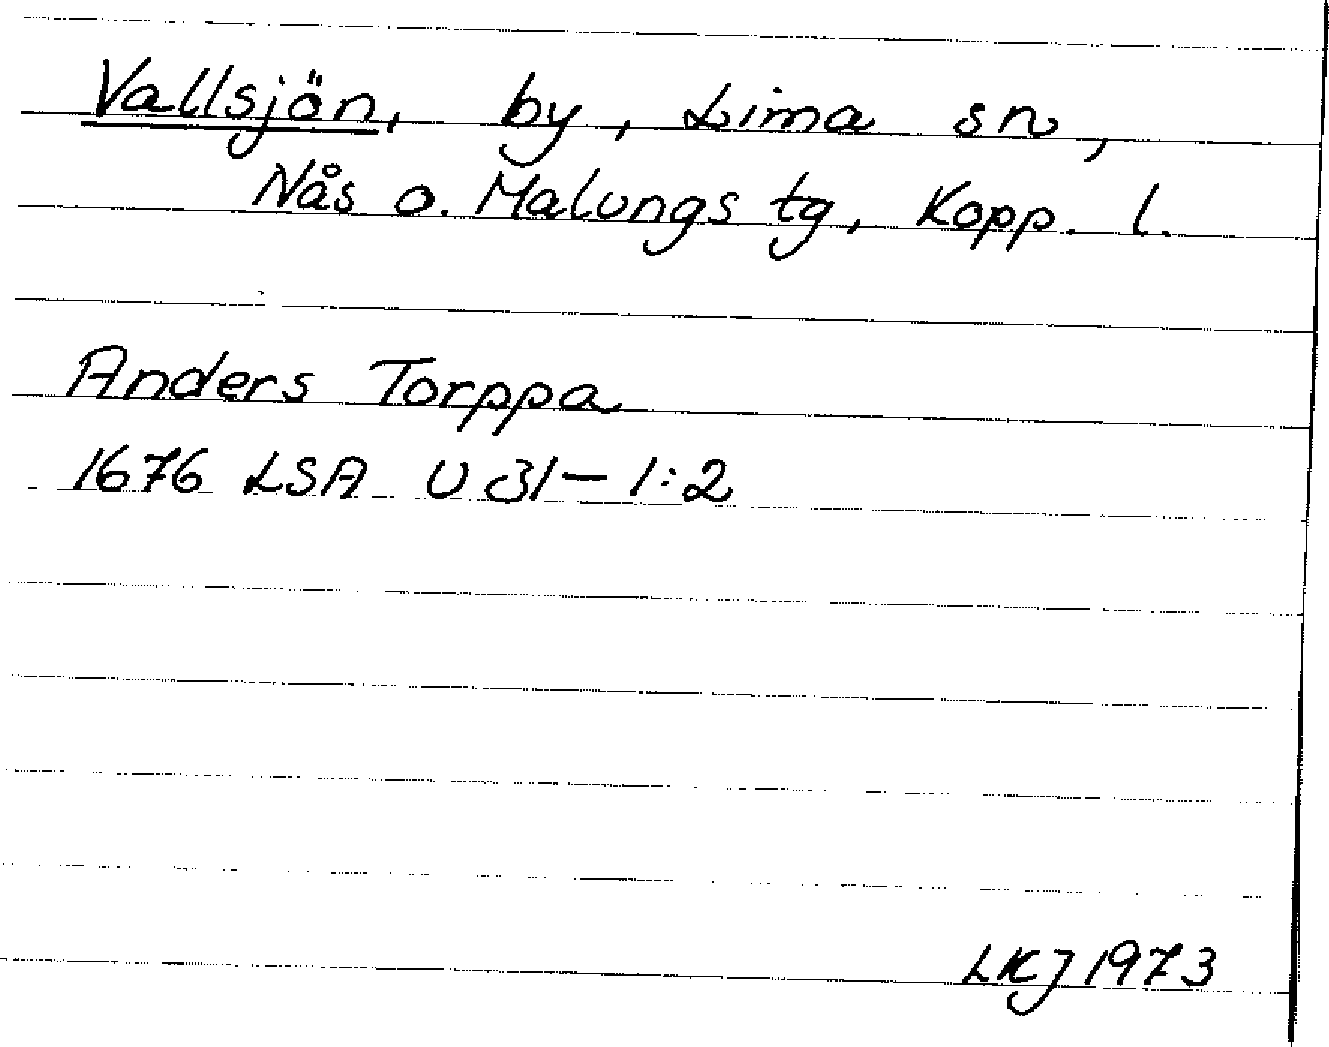 Vallsjön, by, Lima sn,
Nås o. Malungs tg, Kopp. l.
Anders Torppa
1676 LSA U 31-1:2
LKJ 1973